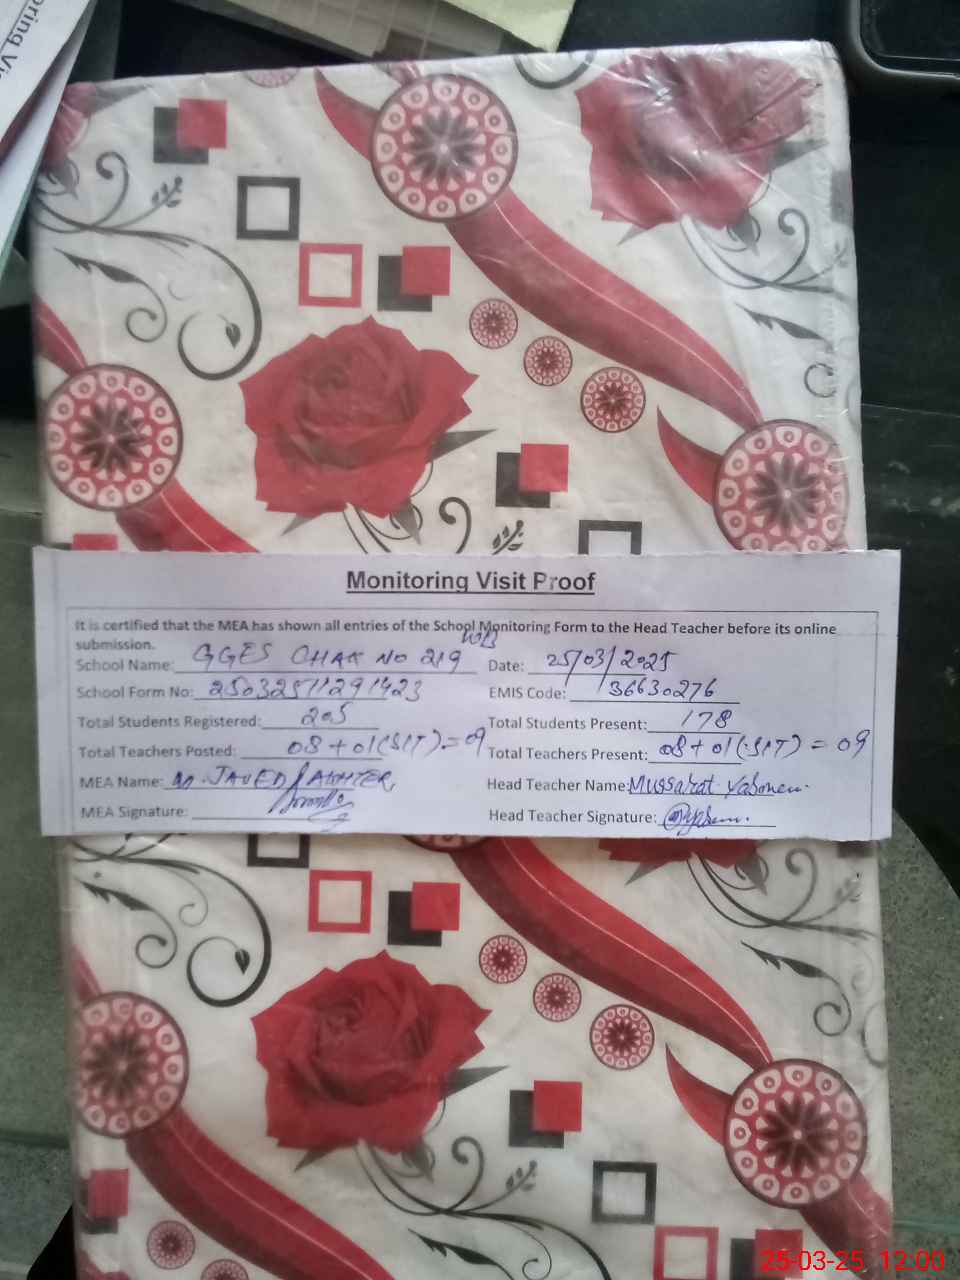 oring Vi
Monitoring Visit Proof
It is certified that the MEA has shown all entries of the School Monitoring Form to the Head Teacher before its online
submission.
School Name: GGES CHAK NO 219 WB Date: 25/03/2025
School Form No: 25032511291423 EMIS Code: 36630276
Total Students Registered: 205 Total Students Present: 178
Total Teachers Posted: 08 + 01 (SIT) = 09 Total Teachers Present: 08 + 01 (SIT) = 09
MEA Name: M. JAVED AKHTER Head Teacher Name: Mussarat Yasmeen.
MEA Signature: Head Teacher Signature:
25-03-25 12:00